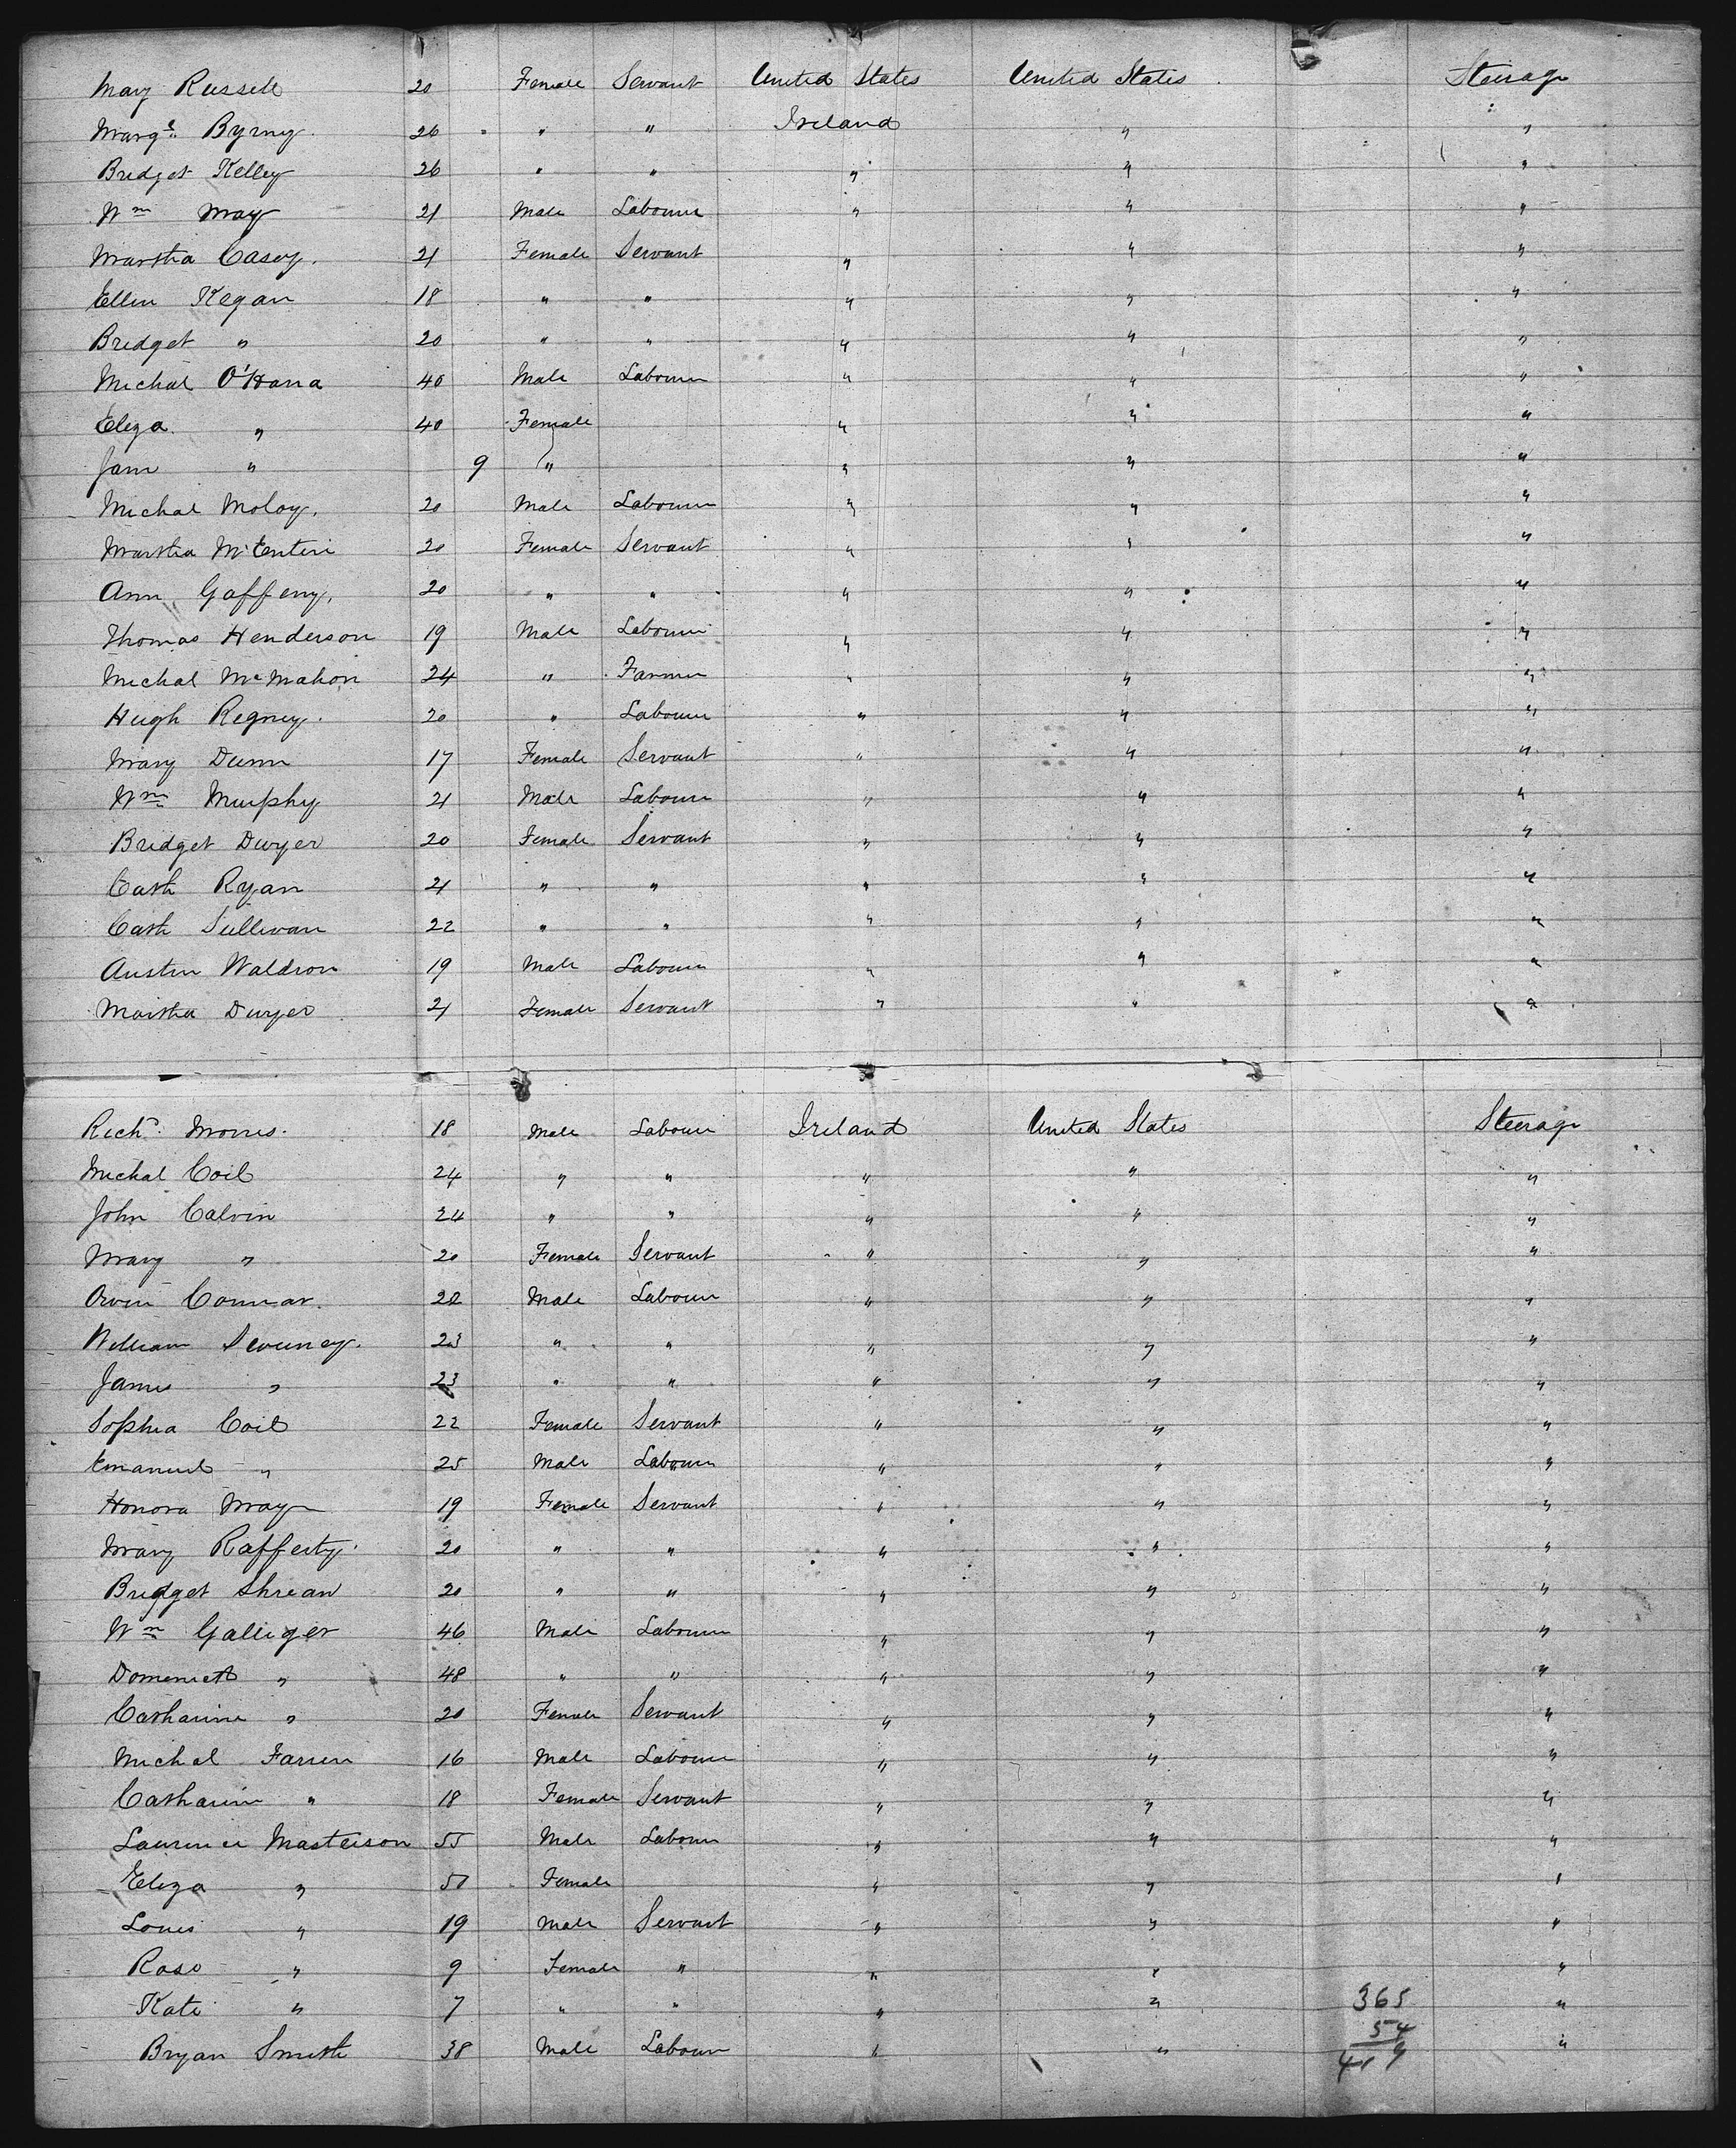 Mary Russell 20 Female Servant United States United States Steerage
Margt Byrney 26 " " Ireland " "
Bridget Kelley 26 " " " " "
Wm May 21 Male Labourer " " "
Martha Casey. 21 Female Servant " " "
Ellen Kegan 18 " " " " "
Bridget " 20 " " " " "
Michal O'Hara 40 Male Labourer " " "
Eliza " 40 Female " " "
Jane " 9 " " " "
Michal Moloy. 20 Male Labourer " " "
Martha McEnteri 20 Female Servant " " "
Ann Gaffeny. 20 " " " " "
Thomas Henderson 19 Male Labourer " " "
Michal McMahon 24 " Farmer " " "
Hugh Regney. 20 " Labourer " " "
Mary Dunn 17 Female Servant " " "
Wm Murphy 21 Male Labourer " " "
Bridget Dwyer 20 Female Servant " " "
Cath Ryan 21 " " " " "
Cath Sullivan 22 " " " " "
Austin Waldron 19 Male Labourer " " "
Martha Dwyer 21 Female Servant " " "
Richd. Morris. 18 Male Labourer Ireland United States Steerage
Michal Coil 24 " " " " "
John Calvin 24 " " " " "
Mary " 20 Female Servant " " "
Owen Connar. 22 Male Labourer " " "
William Sweeney. 23 " " " " "
James " 23 " " " " "
Sophia Coil 22 Female Servant " " "
Emanuel " 25 Male Labourer " " "
Honora May 19 Female Servant " " "
Mary Rafferty. 20 " " " " "
Bridget Shrean 20 " " " " "
Wm Galliger 46 Male Labourer " " "
Domenick " 48 " " " " "
Catharine " 20 Female Servant " " "
Michal Farren 16 Male Labourer " " "
Catharine " 18 Female Servant " " "
Laurence Masterson 55 Male Labourer " " "
Eliza " 50 Female " " "
Louis " 19 Male Servant " " "
Rose " 9 Female " " " "
Kate " 7 " " " " 365 "
54
Bryan Smith 38 Male Labourer " " 419 "